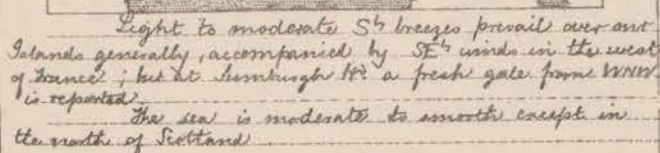 Light to moderate Sʰ breezes prevail over our
Islands generally, accompanied by SEʰ winds in the west
of France; but at Sumburgh Hᵈ a fresh gale from WNW
is reported.
The sea is moderate to smooth except in
the north of Scotland